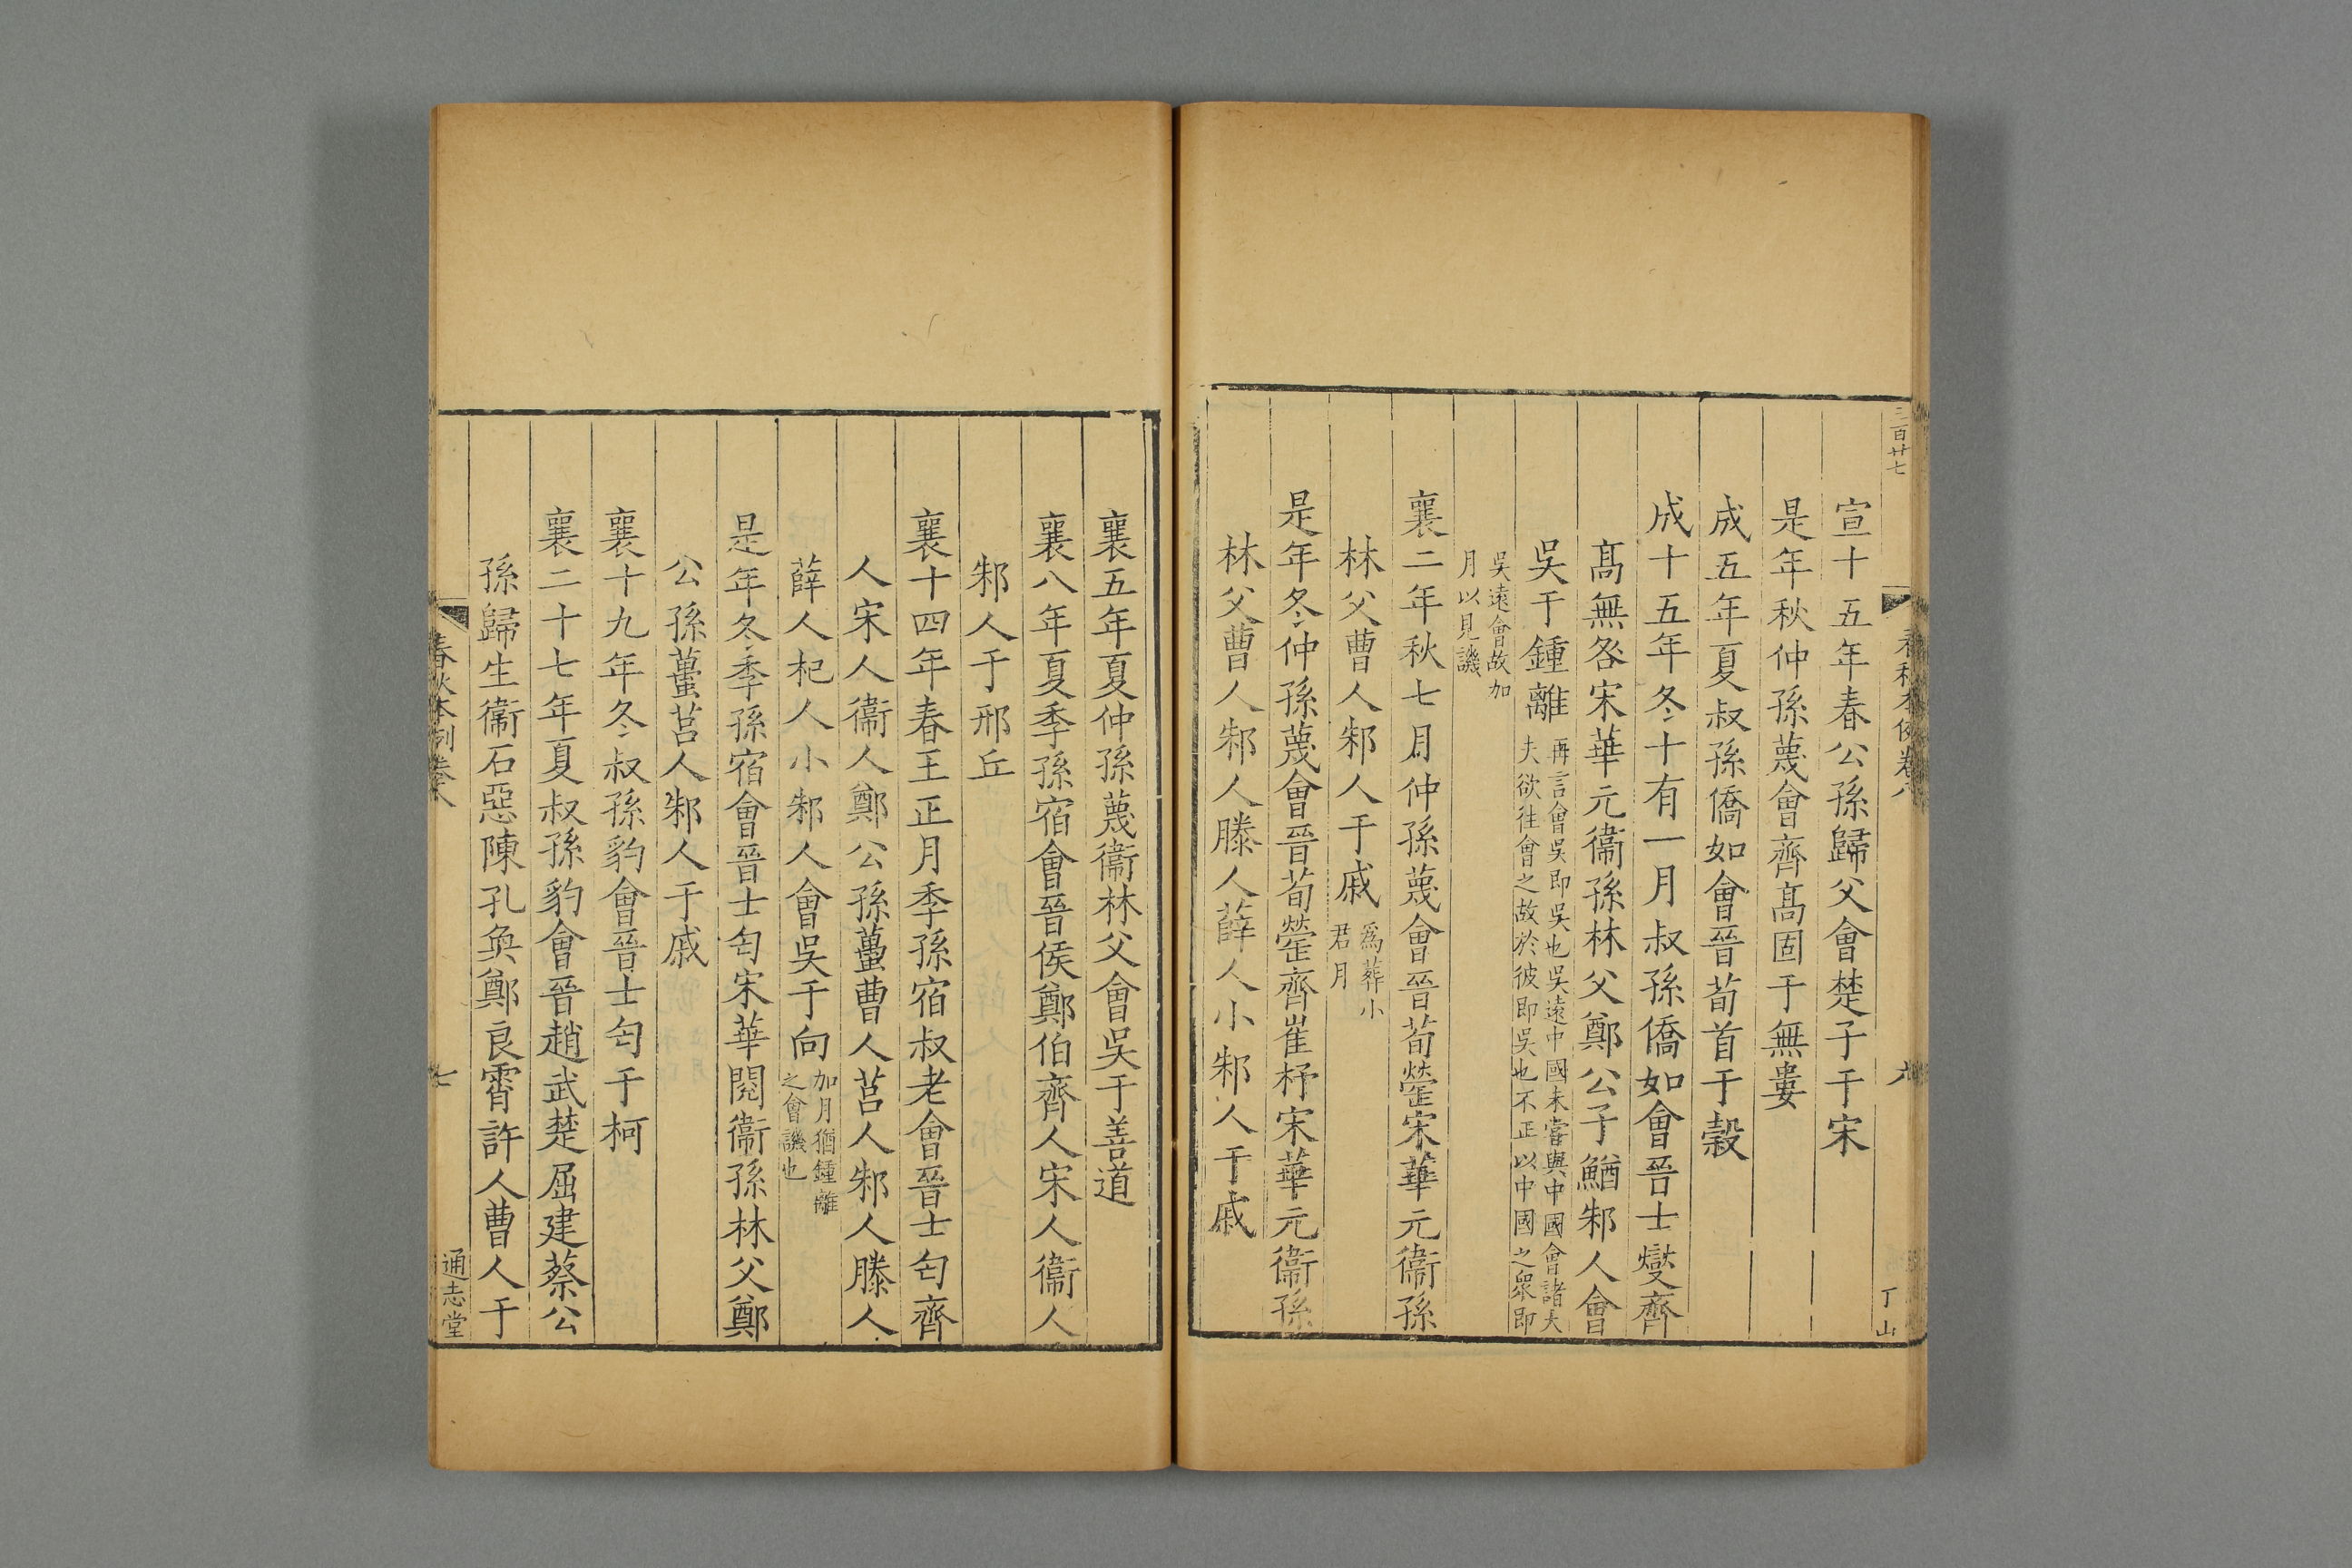 三百廿七
春秋本例卷八
六
丁山
宣十五年春公孫歸父會楚子于宋
是年秋仲孫蔑會齊髙固于無婁
成五年夏叔孫僑如會晉荀首于穀
成十五年冬十有一月叔孫僑如會晉士燮齊
髙無咎宋華元衞孫林父鄭公子鰌邾人會
吳于鍾離
再言會吳即吳也吳遠中國未嘗與中國會諸大
夫欲往會之故於彼即吳也不正以中國之衆即
吳遠會故加
月以見譏
襄二年秋七月仲孫蔑會晉荀罃宋華元衞孫
林父曹人邾人于戚
爲葬小
君月
是年冬仲孫蔑會晉荀罃齊崔杼宋華元衞孫
林父曹人邾人滕人薛人小邾人于戚
襄五年夏仲孫蔑衞林父會吳于善道
襄八年夏季孫宿會晉侯鄭伯齊人宋人衞人
邾人于邢丘
襄十四年春王正月季孫宿叔老會晉士匄齊
人宋人衞人鄭公孫蠆曹人莒人邾人滕人
薛人杞人小邾人會吳于向
加月猶鍾離
之會譏也
是年冬季孫宿會晉士匄宋華閱衞孫林父鄭
公孫蠆莒人邾人于戚
襄十九年冬叔孫豹會晉士匄于柯
襄二十七年夏叔孫豹會晉趙武楚屈建蔡公
孫歸生衞石惡陳孔奐鄭良霄許人曹人于
春秋本例卷八
七
通志堂